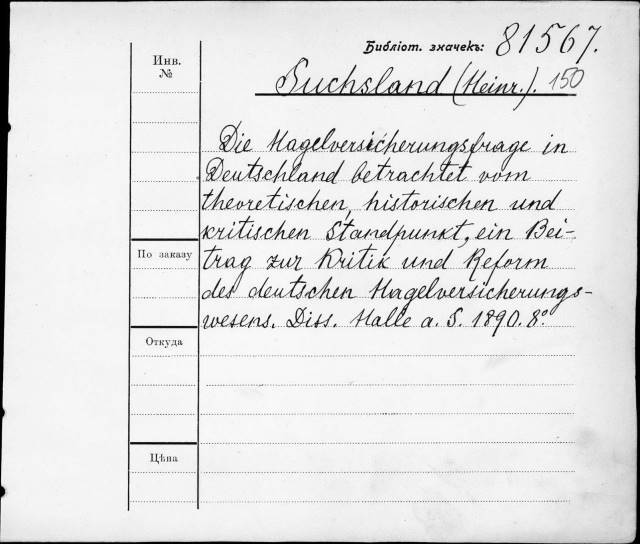 Библіот. значекъ: 81567.
Инв.
№
Suchsland (Heinr.). 150
Die Hagelversicherungsfrage in
Deutschland betrachtet vom
theoretischen, historischen und
kritischen Standpunkt, ein Bei-
По заказу
trag zur Kritik und Reform
des deutschen Hagelversicherungs-
wesens. Diss. Halle a. S. 1890. 8º.
Откуда
Цѣна